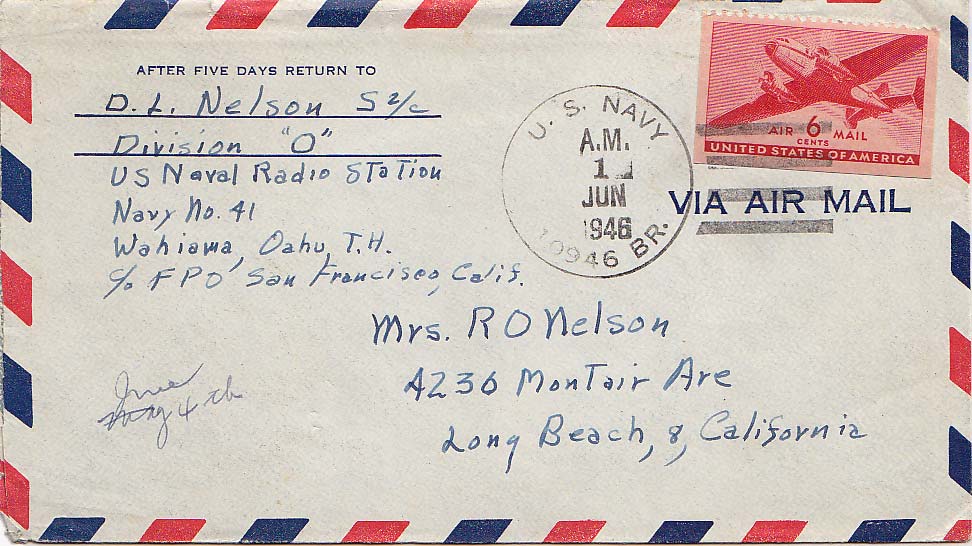 AFTER FIVE DAYS RETURN TO
D. L. Nelson S 2/c
Division "O"
US Naval Radio Station
Navy No. 41
Wahiawa, Oahu, T.H.
c/o FPO San Francisco, Calif.
U. S. NAVY
A.M.
1
JUN
1946
10946 BR.
AIR 6 MAIL
CENTS
UNITED STATES OF AMERICA
VIA AIR MAIL
Mrs. R O Nelson
4236 Montair Ave
Long Beach, 8, California
June
May 4